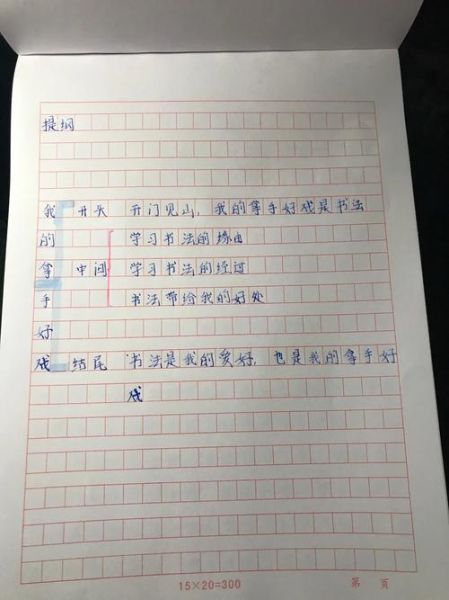 提纲
我的拿手好戏
开头 开门见山，我的拿手好戏是书法
中间 学习书法的缘由
学习书法的经过
书法带给我的好处
结尾 书法是我的爱好，也是我的拿手好
戏
15×20=300
第 页